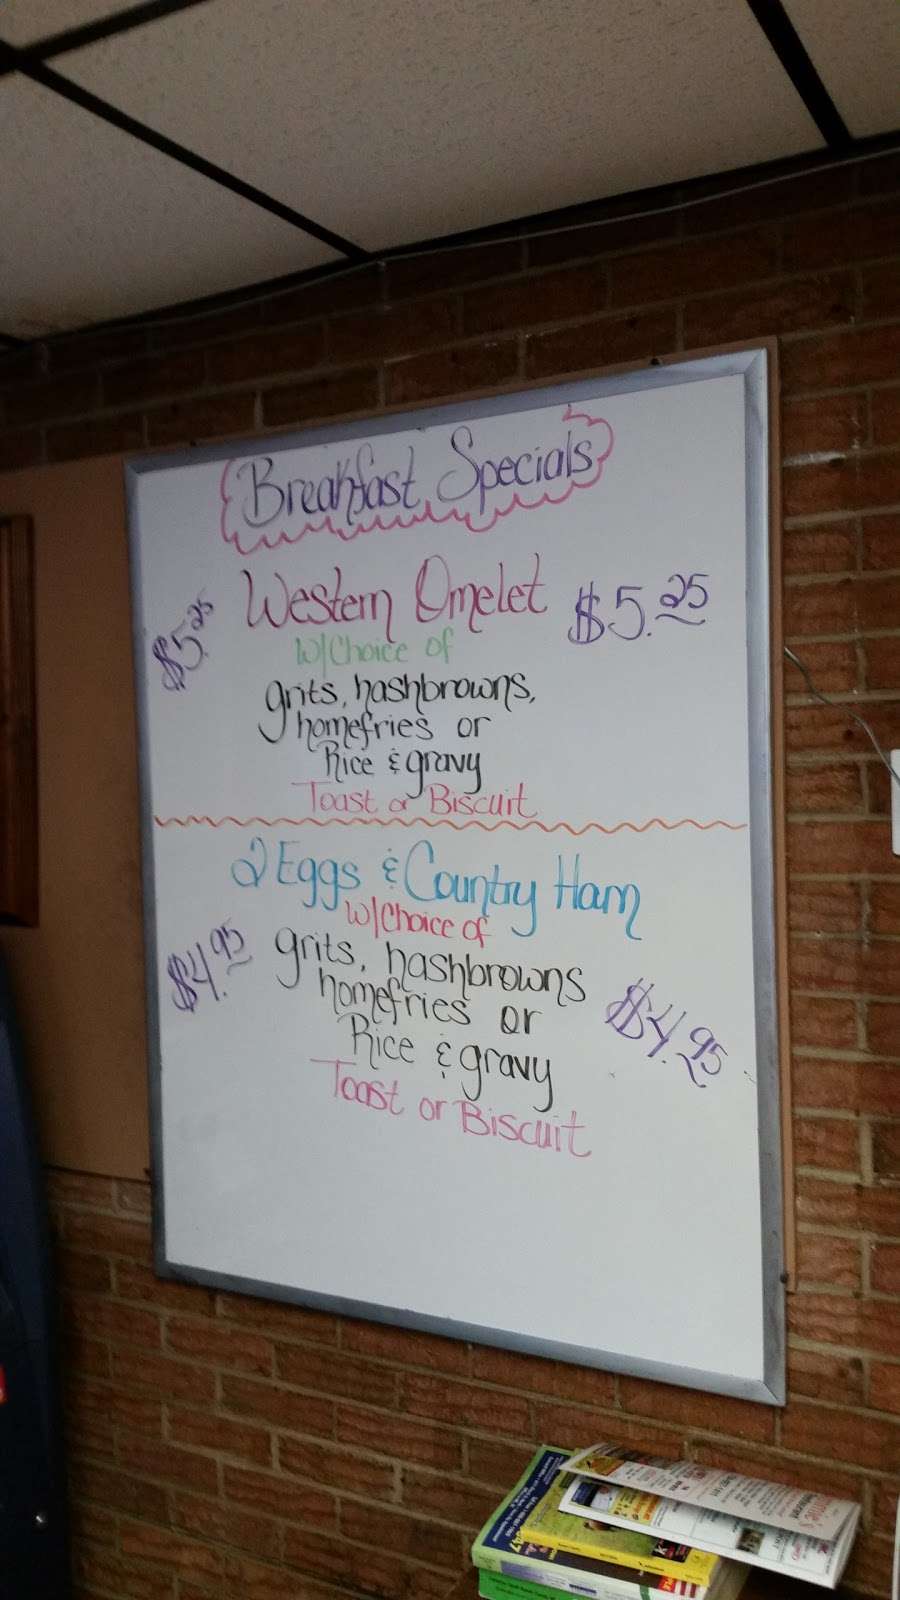 Breakfast Specials
Western Omelet
$5.25
$5.25
W/Choice of
grits, hashbrowns,
homefries or
Rice & gravy
Toast or Biscuit
2 Eggs & Country Ham
W/Choice of
$4.95
grits, hashbrowns
homefries or
$4.95
Rice & gravy
Toast or Biscuit